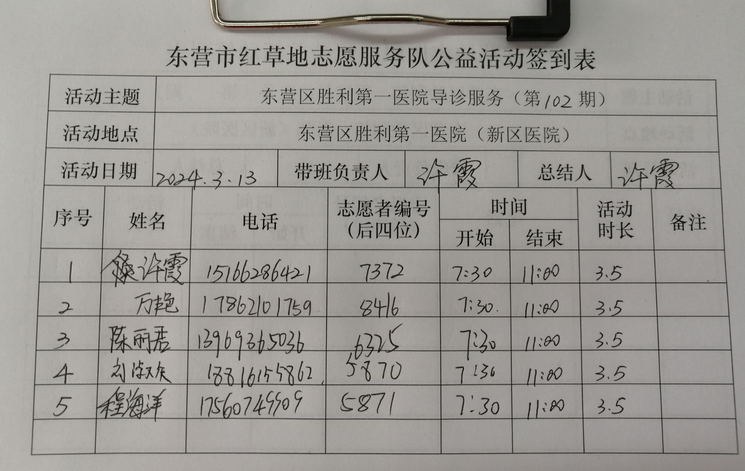 东营市红草地志愿服务队公益活动签到表
活动主题 东营区胜利第一医院导诊服务（第102期）
活动地点 东营区胜利第一医院（新区医院）
活动日期 2024.3.13 带班负责人 许霞 总结人 许霞
序号 姓名 电话 志愿者编号（后四位） 时间 开始 结束 活动时长 备注
1 许霞 15166286421 7372 7:30 11:00 3.5
2 万艳 17862101759 8416 7:30 11:00 3.5
3 陈丽君 13969365036 6325 7:30 11:00 3.5
4 刘 5870 7:30 11:00 3.5
5 程海洋 17560749909 5871 7:30 11:00 3.5